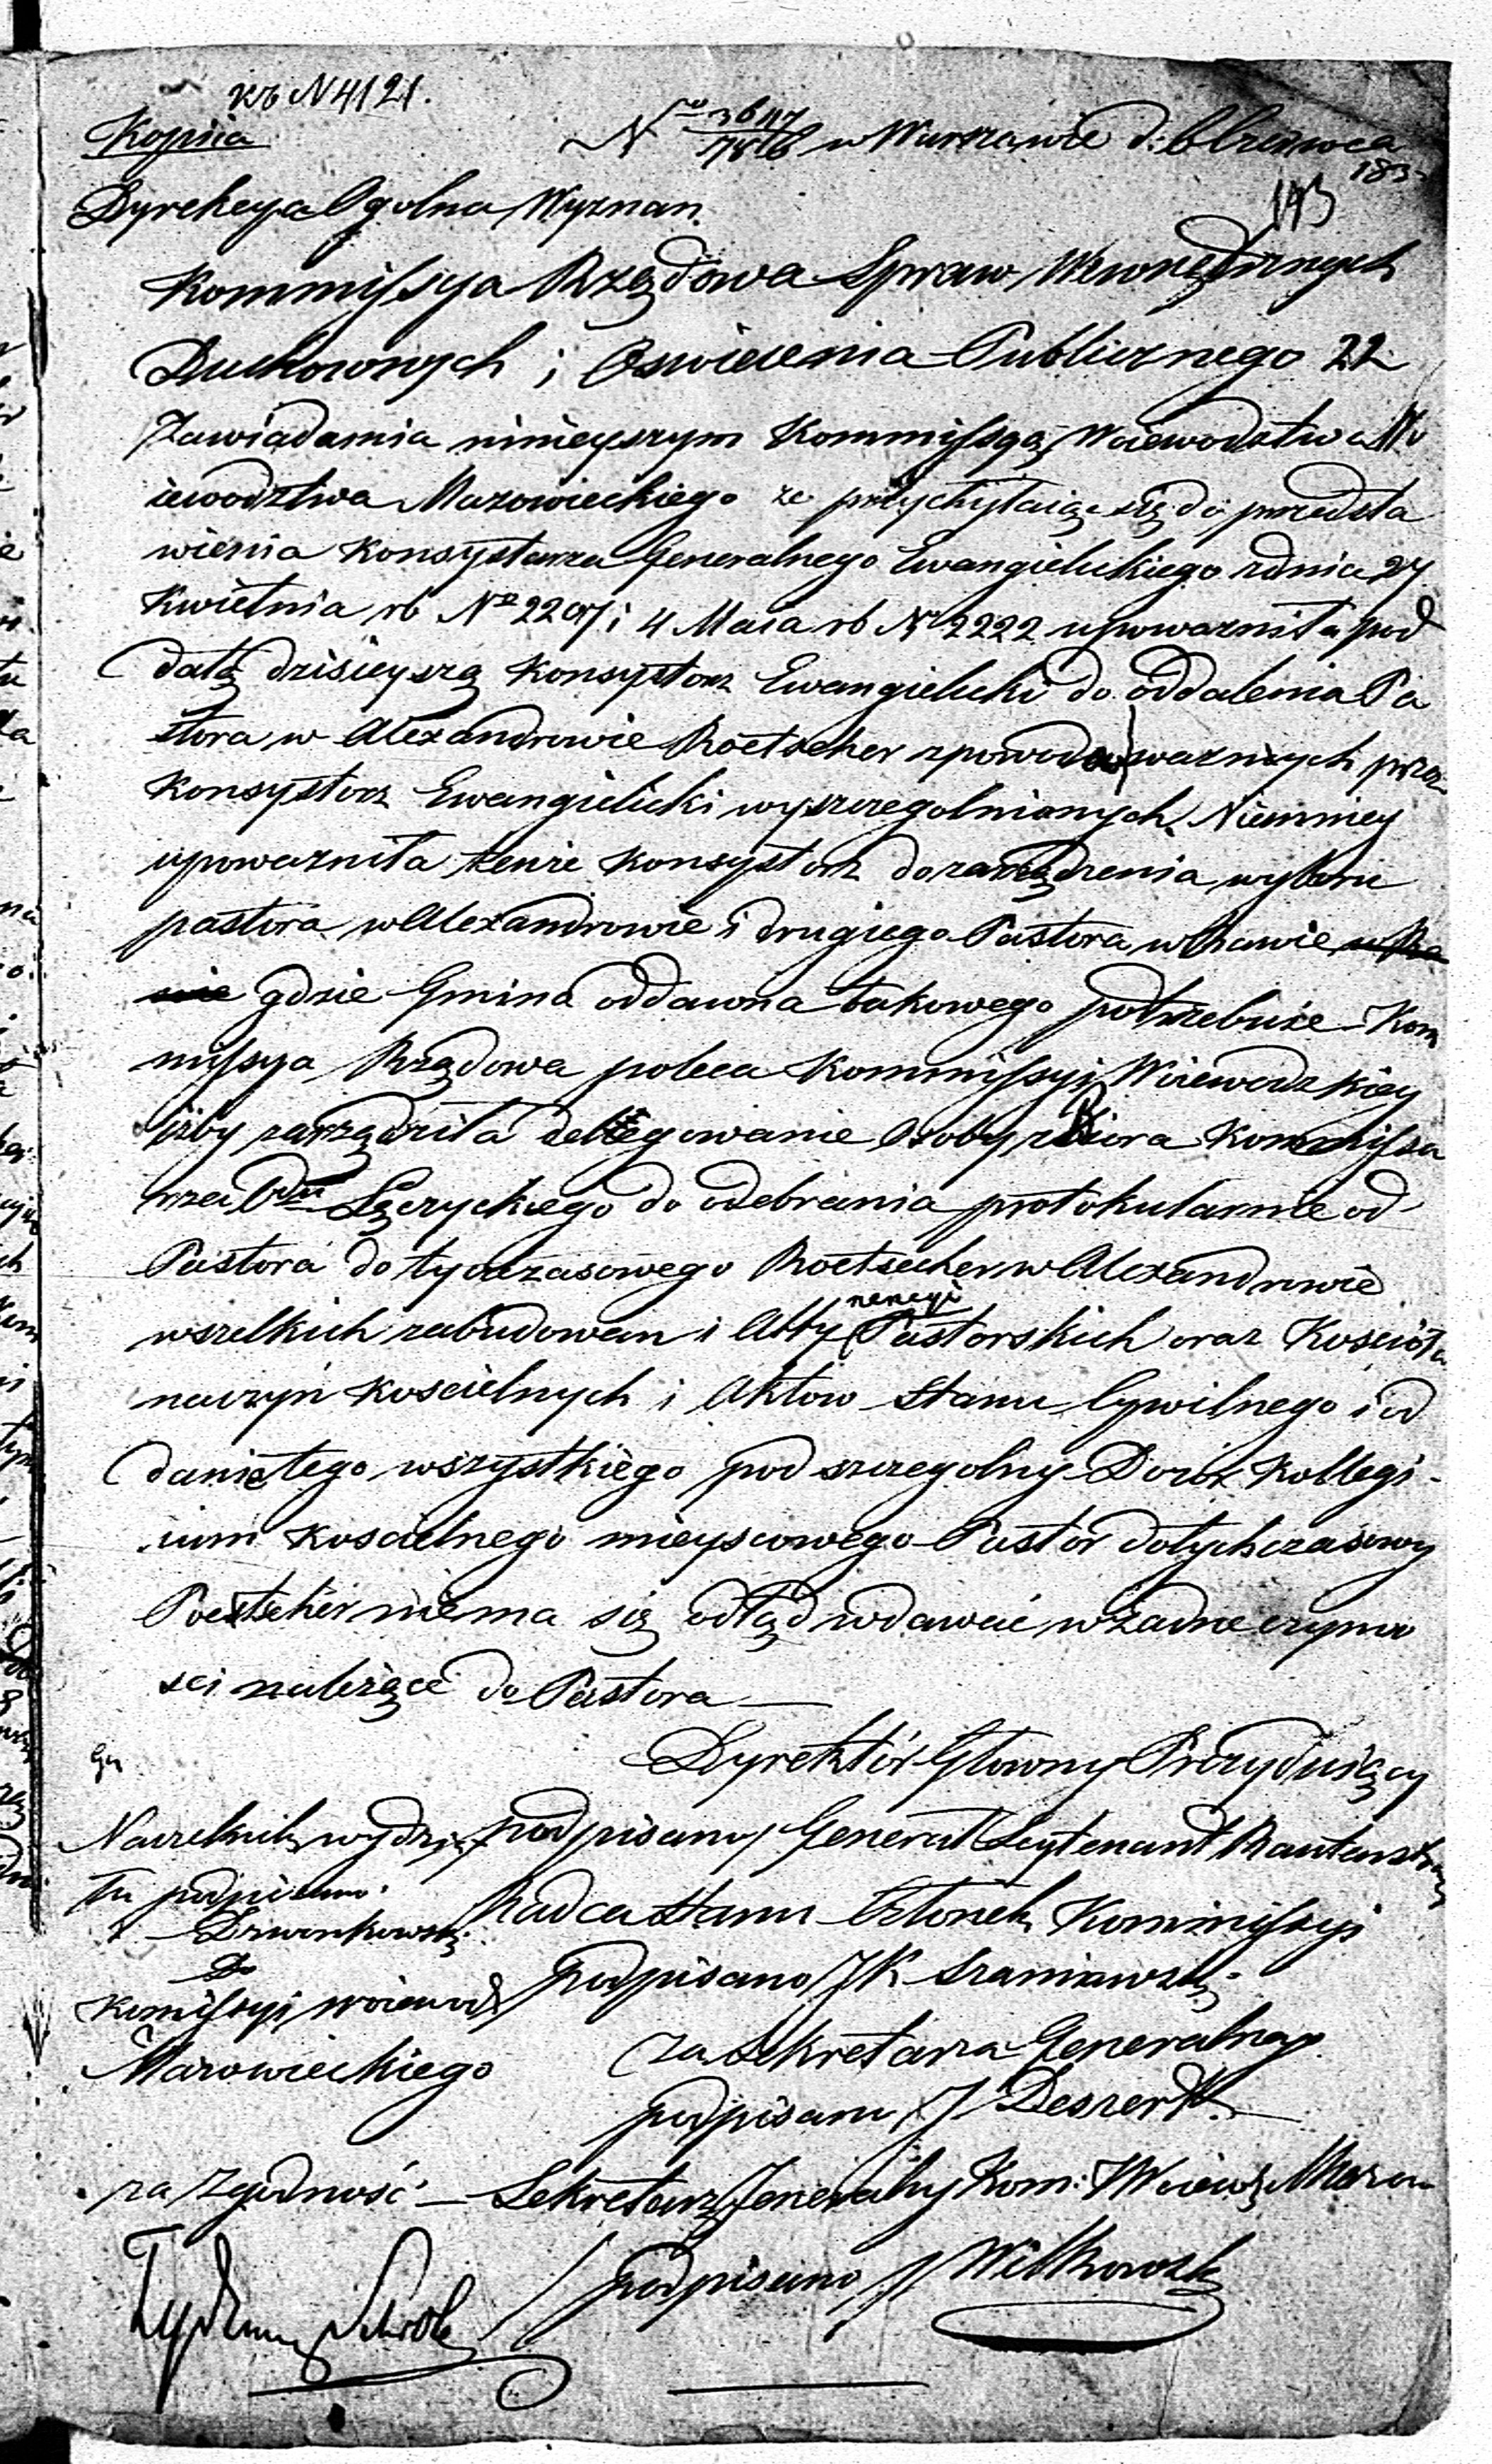 къ N 4121.
Kopiia
N° 3617/7816 w Warszawie d: 6 Czerwca
183
193
Dyrekcya Ogolna Wyznan
Kommissya Rządowa Spraw Wewnętrznych
Duchownych i Oswiecenia Publicznego 22
Zawiadamia ninieyszym Kommissyą Woiewodztwa Wo
iewodztwa Mazowieckiego ze przychylaiąc się do przedsta
wienia Konsystorza Generalnego Ewangielickiego z dnia 27
Kwietnia rb N° 2207 i 4 Maia rb N° 2222 upowazniła pod
datą dzisieyszą Konsystorz Ewangielicki do oddalenia Pa
stora w Alexandrowie Roetscher z powodow waznych przez
Konsystorz Ewangielicki wyszczegolnionych. Niemniey
upowazniła tenże Konsystorz do zarządzenia wyboru
pastora w Alexandrowie i drugiego Pastora w Rawie w Ra
wie gdzie Gmina oddawna takowego potrzebuie. Kom
missya Rządowa poleca Kommissyi Woiewodzkiey
iżby zarządziła delegowanie Osoby z Biora Kommissa
rza Odu Łęczyckiego do odebrania protokularnie od
Pastora dotychczasowego Roetscher w Alexandrowie
wszelkich zabudowan i Atty Pastorskich oraz Kościoła
naczyń Koscielnych i Aktow Stanu Cywilnego i od
dania tego wszystkiego pod szczegolny Dozór Kollegi-
ium Koscielnego mieyscowego Pastor dotychczasowy
Poetscher niema się odtąd wdawać w żadne czynno
sci należące do Pastora
Dyrektór Głowny Prezyduiący
Naczelnik wydzia podpisany Generał Leytenant Rautenstrauch
łu podpisano
Radca Stanu Członek Kommissyi
Dzwonkowski
podpisano J K Szaniawski
Do
Komissyi Woiewodz
Mazowieckiego
za Sekretarza Generalnego
podpisano J Deszert
za Zgodność — Sekretarz Jeneralny Kom: Woiewz Mazow
podpisano J Wilkowski